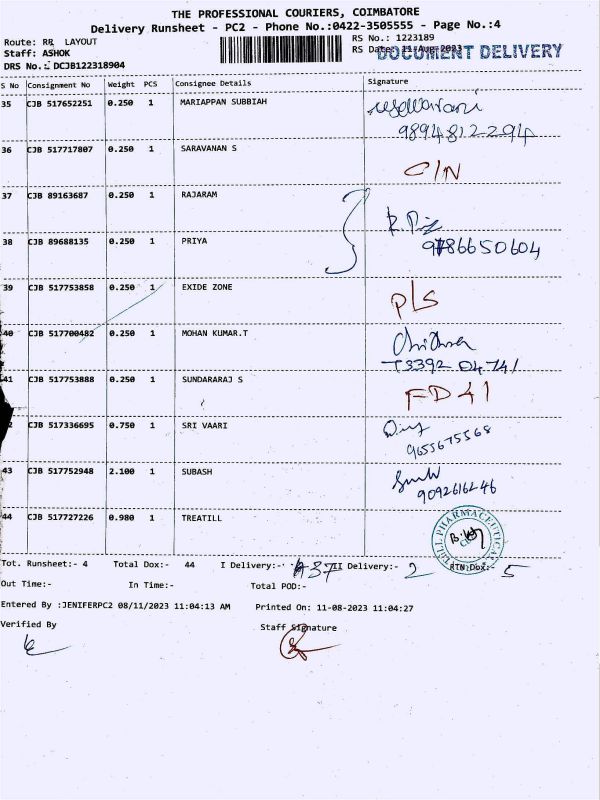 THE PROFESSIONAL COURIERS, COIMBATORE
Delivery Runsheet - PC2 - Phone No.:0422-3505555 - Page No.:4
Route: RR LAYOUT
RS No.: 1223189
Staff: ASHOK
RS Date: 11-Aug-2023
DOCUMENT DELIVERY
DRS No.: DCJB122318904
S No Consignment No Weight PCS Consignee Details Signature
35 CJB 517652251 0.250 1 MARIAPPAN SUBBIAH
9894812294
36 CJB 517717807 0.250 1 SARAVANAN S
C/N
37 CJB 89163687 0.250 1 RAJARAM
38 CJB 89688135 0.250 1 PRIYA
9786650604
39 CJB 517753858 0.250 1 EXIDE ZONE
P/S
40 CJB 517700482 0.250 1 MOHAN KUMAR.T
73392 04741
41 CJB 517753888 0.250 1 SUNDARARAJ S
FD 41
2 CJB 517336695 0.750 1 SRI VAARI
9655675568
43 CJB 517752948 2.100 1 SUBASH
9092616246
44 CJB 517727226 0.980 1 TREATILL
Tot. Runsheet:- 4 Total Dox:- 44 I Delivery:- 37 II Delivery:- 2 RTN Dox:- 5
Out Time:- In Time:- Total POD:-
Entered By :JENIFERPC2 08/11/2023 11:04:13 AM Printed On: 11-08-2023 11:04:27
Verified By Staff Signature